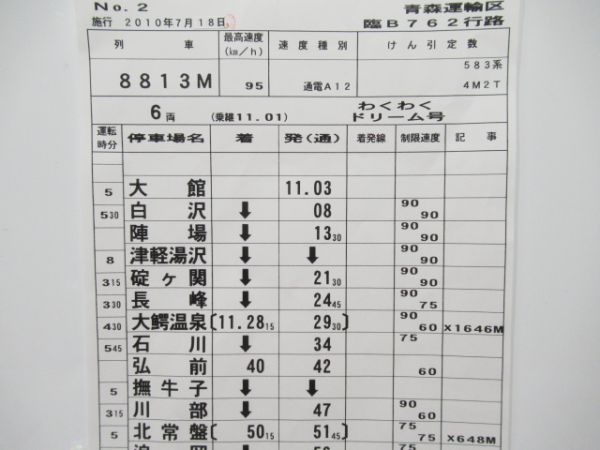 No.2 青森運輸区
施行 2010年7月18日 臨B762行路
列 車 最高速度(km/h) 速度種別 けん引定数
8813M 95 通電A12 583系 4M2T
6両 (乗継11.01) わくわくドリーム号
運転時分 停車場名 着 発(通) 着発線 制限速度 記事
5 大館 11.03
530 白沢 ↓ 08 90 90
陣場 ↓ 1330 90 90
8 津軽湯沢 ↓ ↓ 90 90
315 碇ヶ関 ↓ 2130 90 90
330 長峰 ↓ 2445 90 75
430 大鰐温泉 〔11.2815 2930〕 90 60 X1646M
545 石川 ↓ 34 75
弘前 40 42 60
5 撫牛子 ↓ ↓
315 川部 ↓ 47 90 60
5 北常盤 〔 5015 5145〕 75 75 X648M